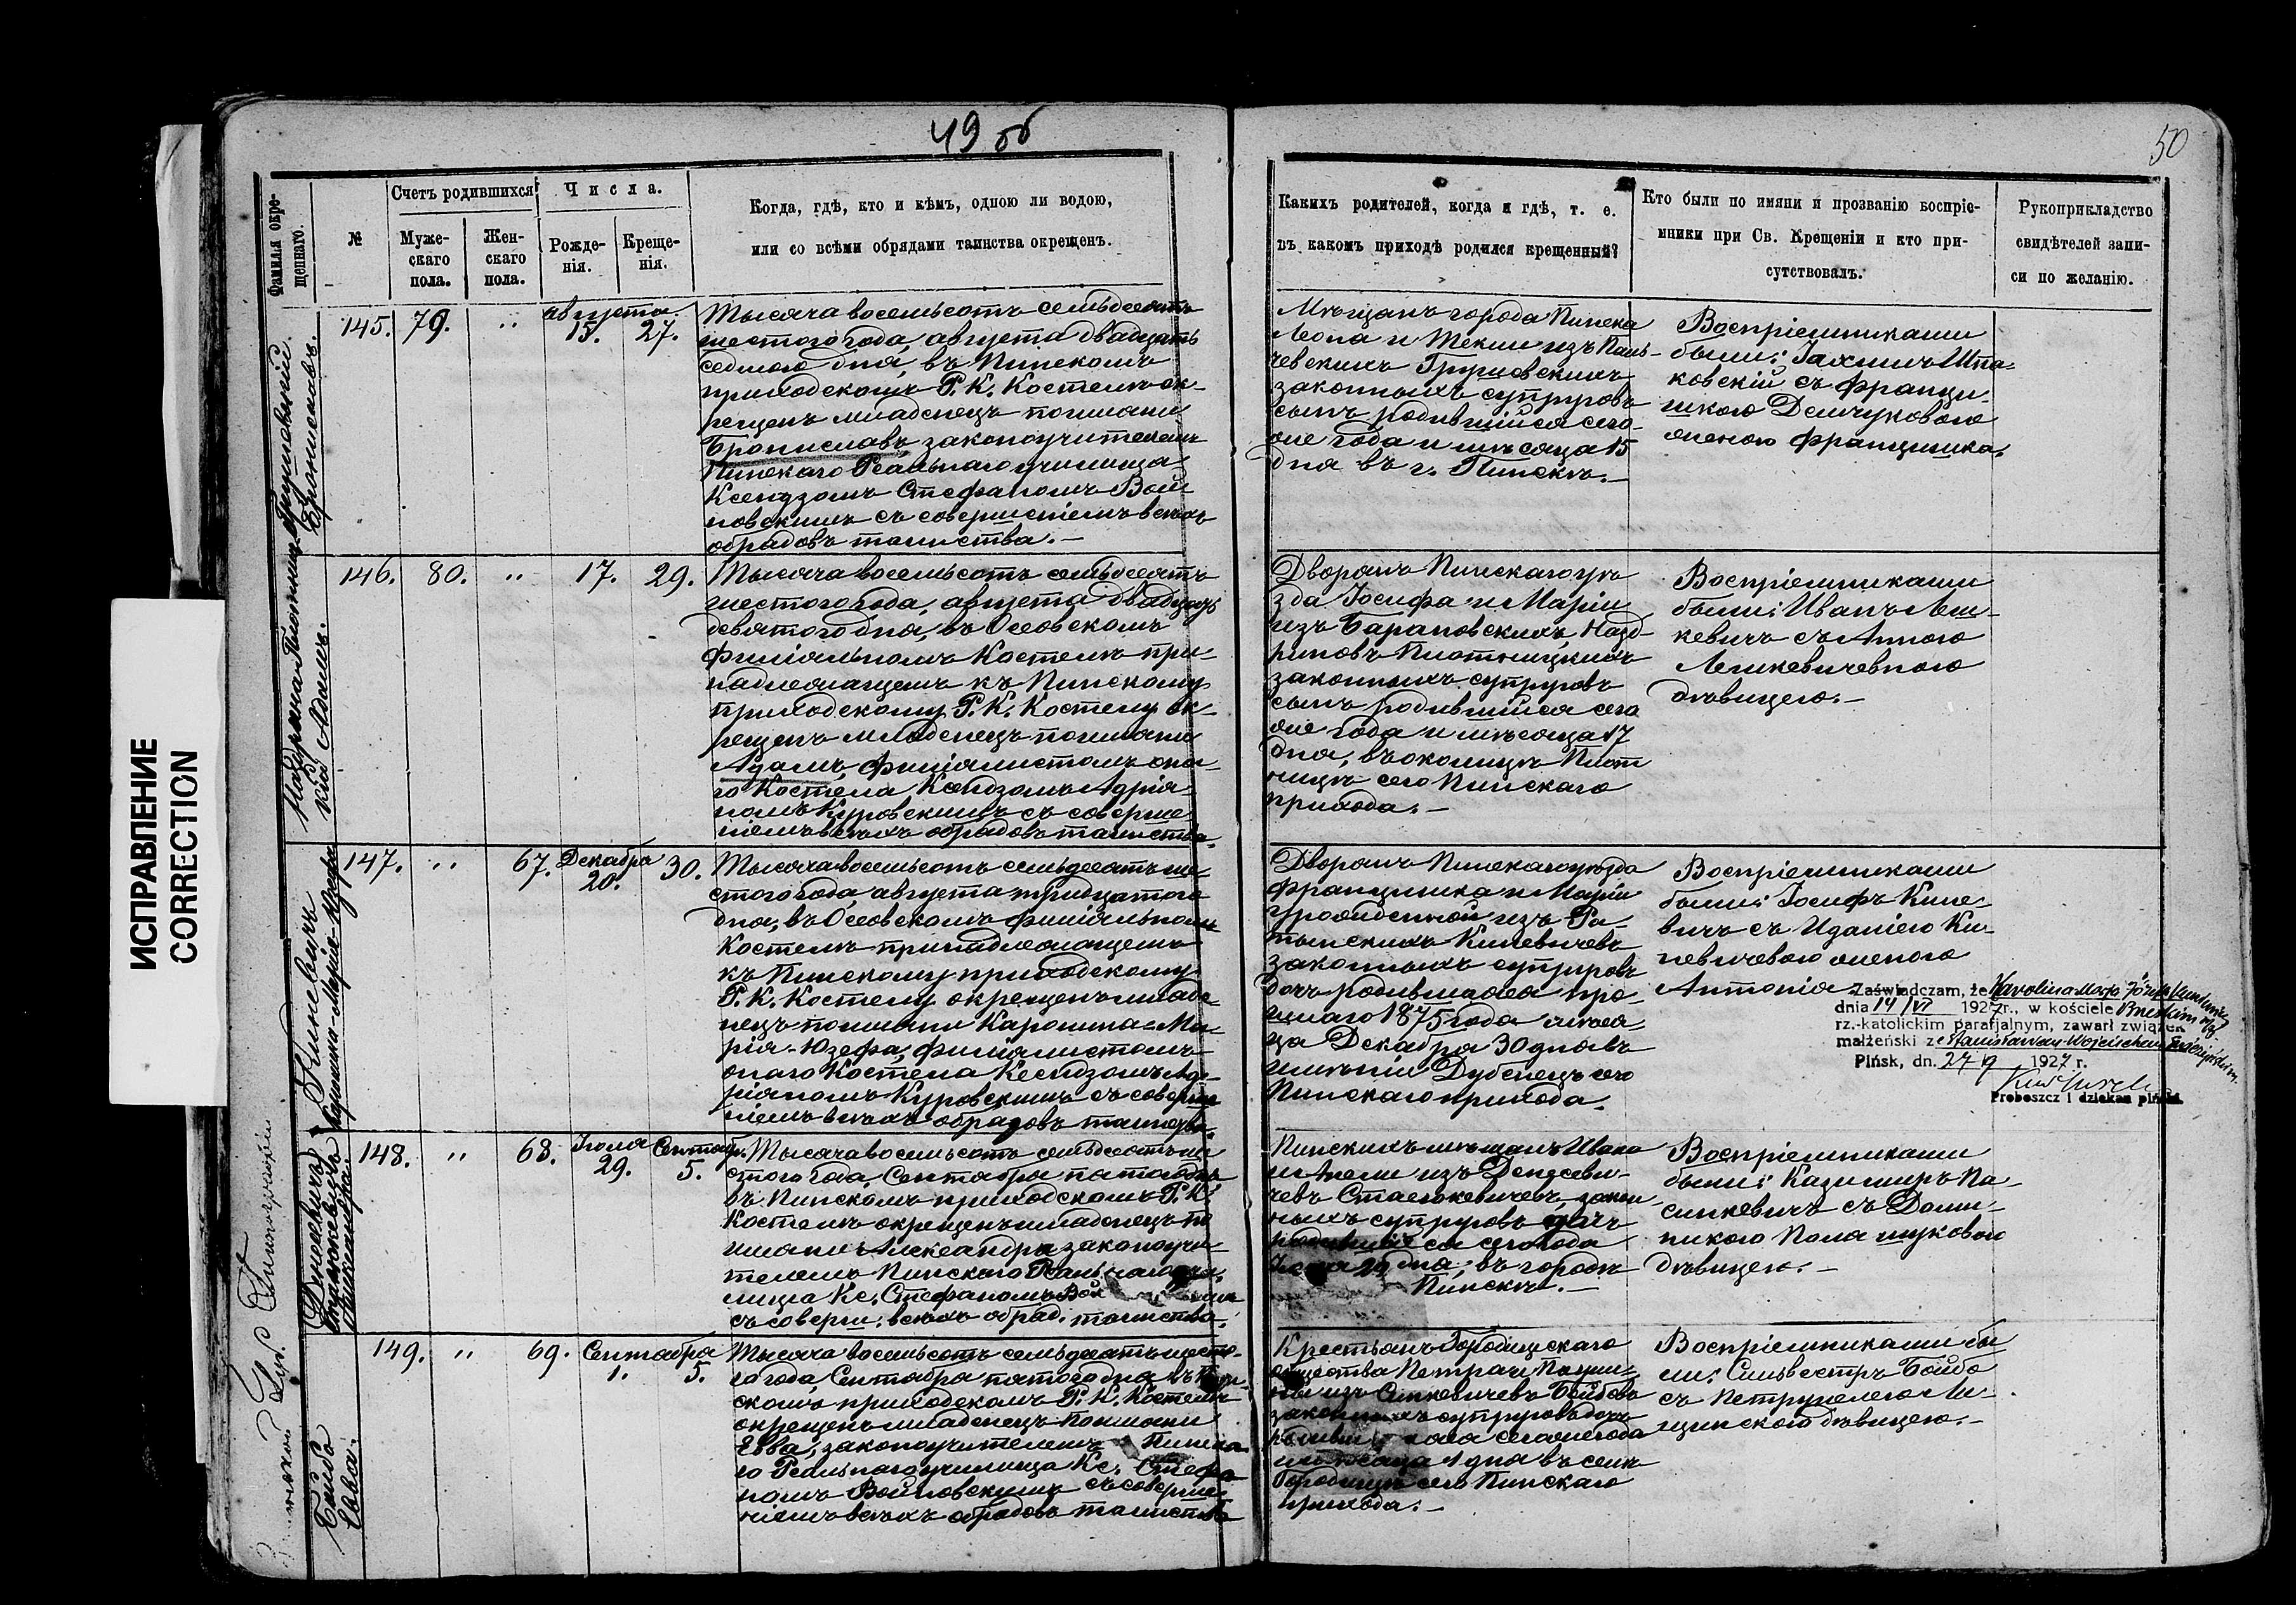 49 об
50
ИСПРАВЛЕНИЕ
CORRECTION
Фамилія окре-
щеннаго.
№
Счетъ родившихся
Муже-
скаго
пола.
Жен-
скаго
пола.
Числа.
Рожде-
нія.
Креще-
нія.
Когда, гдѣ, кто и кѣмъ, одною ли водою,
или со всѣми обрядами таинства окрещенъ.
Какихъ родителей, когда и гдѣ, т. е.
въ какомъ приходѣ родился крещенный?
Кто были по имяни и прозванію воспріе-
мники при Св. Крещеніи и кто при-
сутствовалъ.
Рукоприкладство
свидѣтелей запи-
си по желанію.
Брониславъ.
145. 79. " августа 15. 27.
Тысяча восемьсотъ семьдесятъ
шестого года, августа двадцать
седмого дня, въ Пинскомъ
приходскомъ Р. К. Костелѣ ок-
рещенъ младенецъ по имени
Брониславъ, законоучителемъ
Пинскаго Реальнаго училища
Ксендзомъ Стефаномъ Вой
новскимъ съ совершеніемъ всѣхъ
обрядовъ таинства. —
Мѣщанъ города Пинска
Леона и Теклі изъ Пань-
чевскихъ
законныхъ супруговъ
сынъ родившійся сего-
же года и мѣсяца 15
дня въ г. Пинскѣ. —
Воспріемниками
были: Іахимъ Шпа-
ковскій съ Францы-
шкою Демчуковою
женою Францишка.
кій Адамъ.
146. 80. " 17. 29.
Тысяча восемьсотъ семьдесятъ
шестого года, августа двадцать
девятого дня, въ Осовскомъ
филіяльномъ Костелѣ при-
надлежащемъ къ Пинскому
приходскому Р. К. Костелу ок-
рещенъ младенецъ по имени
Адамъ, филіялистомъ она-
го Костела Ксендзомъ Адрія-
номъ Куровскимъ съ соверше-
ніемъ всѣхъ обрядовъ таинства.
Дворянъ Пинскаго уѣ
зда Іосифа и Маріи
изъ Барановскихъ Надб-
риновъ Плотницкихъ
законныхъ супруговъ
сынъ родившійся сего
же года и мѣсяца 17
дня, въ околицѣ Плот
ницѣ сего Пинскаго
прихода. —
Воспріемниками
были: Иванъ Леш-
кевичъ съ Анною
Лешкевичевною
дѣвицею. —
Киневичъ
Каролина-Марія-Юзефа
147. " 67. Декабря 20. 30.
Тысяча восемьсотъ семьдесятъ ше-
стого года, августа тридцатого
дня, въ Осовскомъ филіяльномъ
Костелѣ принадлежащемъ
къ Пинскому приходскому
Р. К. Костелу окрещенъ младе
нецъ по имени Каролина-Ма-
рія-Юзефа, филіялистомъ
онаго Костела Ксендзомъ Ад-
ріяномъ Куровскимъ съ соверше
ніемъ всѣхъ обрядовъ таинства.
Дворянъ Пинскаго уѣзда
Францишка и Маріи
урожденной изъ Ра-
тынскихъ Киневичевъ
законныхъ супруговъ
дочь родившаяся про-
шлаго 1875 года мѣся-
ца Декабря 30 дня въ
имѣніи Дубенецъ сего
Пинскаго прихода.
Воспріемниками
были: Іосифъ Кине-
вичъ съ Иданіею Ки-
невичевою женою
Антонія.
Zaświadczam, że Karolina Marja Józefa
dnia 14/VI 1927 r., w kościele
rz.-katolickim parafjalnym, zawarł związek
małżeński ze Stanisławem-Wojciechem
Pińsk, dn. 27 9 1927 r.
Proboszcz i dziekan piński
148. " 68. Іюля 29. Сентябр. 5.
Тысяча восемьсотъ семьдесятъ ше
стого года, Сентября пятого дня
въ Пинскомъ приходскомъ Р. К.
Костелѣ окрещенъ младенецъ по
имени Александра законоучи-
телемъ Пинского Реальнаго учи-
лища Кс. Стефаномъ Вой
съ соверш. всѣхъ обряд. таинства.
Пинскихъ мѣщанъ Ивана
и Анели изъ Денисеви-
чевъ Стаслюкевичевъ, закон
ныхъ супруговъ дочь
сего года
29 дня, въ городѣ
Пинскѣ. —
Воспріемниками
были: Казимиръ Па-
シ
синкевичъ съ Доми-
никою
дѣвицею. —
Бойба
Евва.
149. " 69. Сентября 1. 5.
Тысяча восемьсотъ семьдесятъ шесто-
го года, Сентября пятого дня въ Пин-
скомъ приходскомъ Р. К. Костелѣ
окрещенъ младенецъ по имени
Евва, законоучителемъ Пинска
го Реальнаго училища Кс. Стефа
номъ Войновскимъ съ соверше-
ніемъ всѣхъ обрядовъ таинства
Крестьянъ Городищскаго
общества Петра и
изъ Синкевичевъ Бойбовъ
законныхъ супруговъ дочь
сего же года
и мѣсяца 1 дня въ селѣ
Городищѣ сего Пинскаго
прихода. —
Воспріемниками бы
ли: Сильвестръ Бойба
съ Петрунелею Ли-
щинскою дѣвицею. —